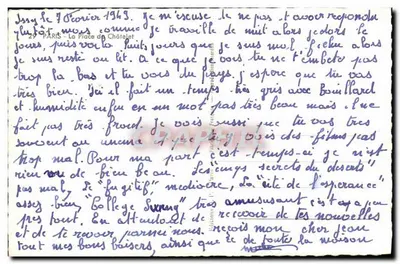 Issy le 7 Février 1949. Je m'excuse de ne pas t'avoir répondu
plutôt mais comme je travaille de nuit alors je dors le
jours, puis voila huits jours que je suis mal fichu alors
je suis resté au lit. A ce que je vois tu ne t'embete pas
trop la-bas et tu vois du pays, j'espere que tu vas
très bien. Ici il fait un temps très gris avec brouillard
et humidité enfin en un mot pas très beau mais il ne
fait pas très froid. Je vois aussi que tu vas très
souvent au cinema et que tu vois des films pas
trop mal. Pour ma part c'est temps-ci je n'est
rien vu de bien beau. Les "cinqs secrets du desert"
pas mal, le "Fugitif" mediocre, "La cité de l'esperance"
assez bien, "College Swing" très amusant c'est à peu
près tout. En attendant de recevoir de tes nouvelles
et de te revoir parmi nous. reçois mon cher Jean
tout mes bons baisers, ainsi que de toute la maison
PARIS - La Place du Châtelet